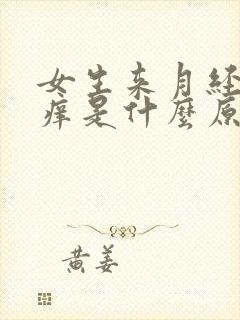 女生来月经
痒是什麼原
黄姜